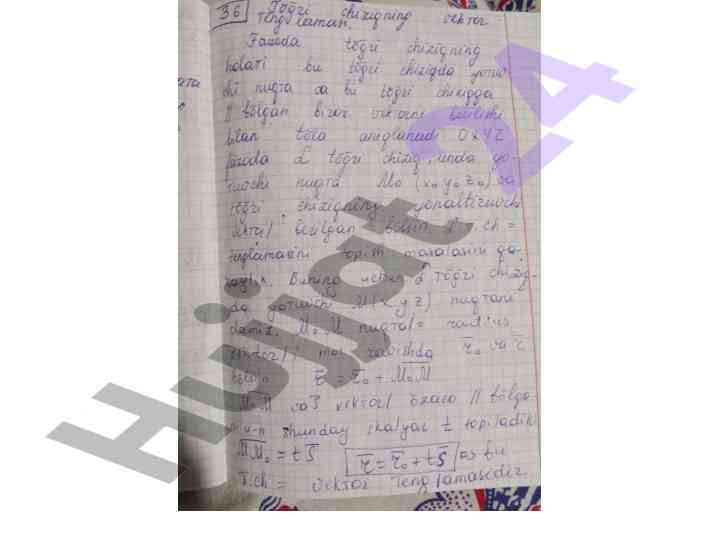 36 Tõgri chiziqning vektor
tenglamasi.
Fazoda tõgri chiziqning
holati bu tõgri chiziqda yotuv-
chi nuqta va bu tõgri chiziqga
// bõlgan biror vektorni berilishi
bilan tõla aniqlanadi OXYZ
fazoda L tõgri chiziq, unda yo-
tuvchi nuqta M₀ (x₀ y₀ z₀) va
tõgri chiziqning yonaltiruvchi
vektor/ berilgan bõlsin. L t. ch =
tenglamasini topish masalasini qa-
raylik. Buning uchun L tõgri chiziq-
da yotuvchi M(x y z) nuqtani
olamiz. M₀ M nuqta/= radius
vektor// mos ravishda r̅₀ va r̅
bõlsin r̅ = r̅₀ + M̅₀M̅
M̅₀M̅ va S̅ vektor/ õzaro // bõlga-
ni u-n shunday skalyar t topiladiki
M̅M̅₀ = tS̅ r̅ = r̅₀ + tS̅ bu
T.ch = vektor tenglamasidir
Hujjat 24